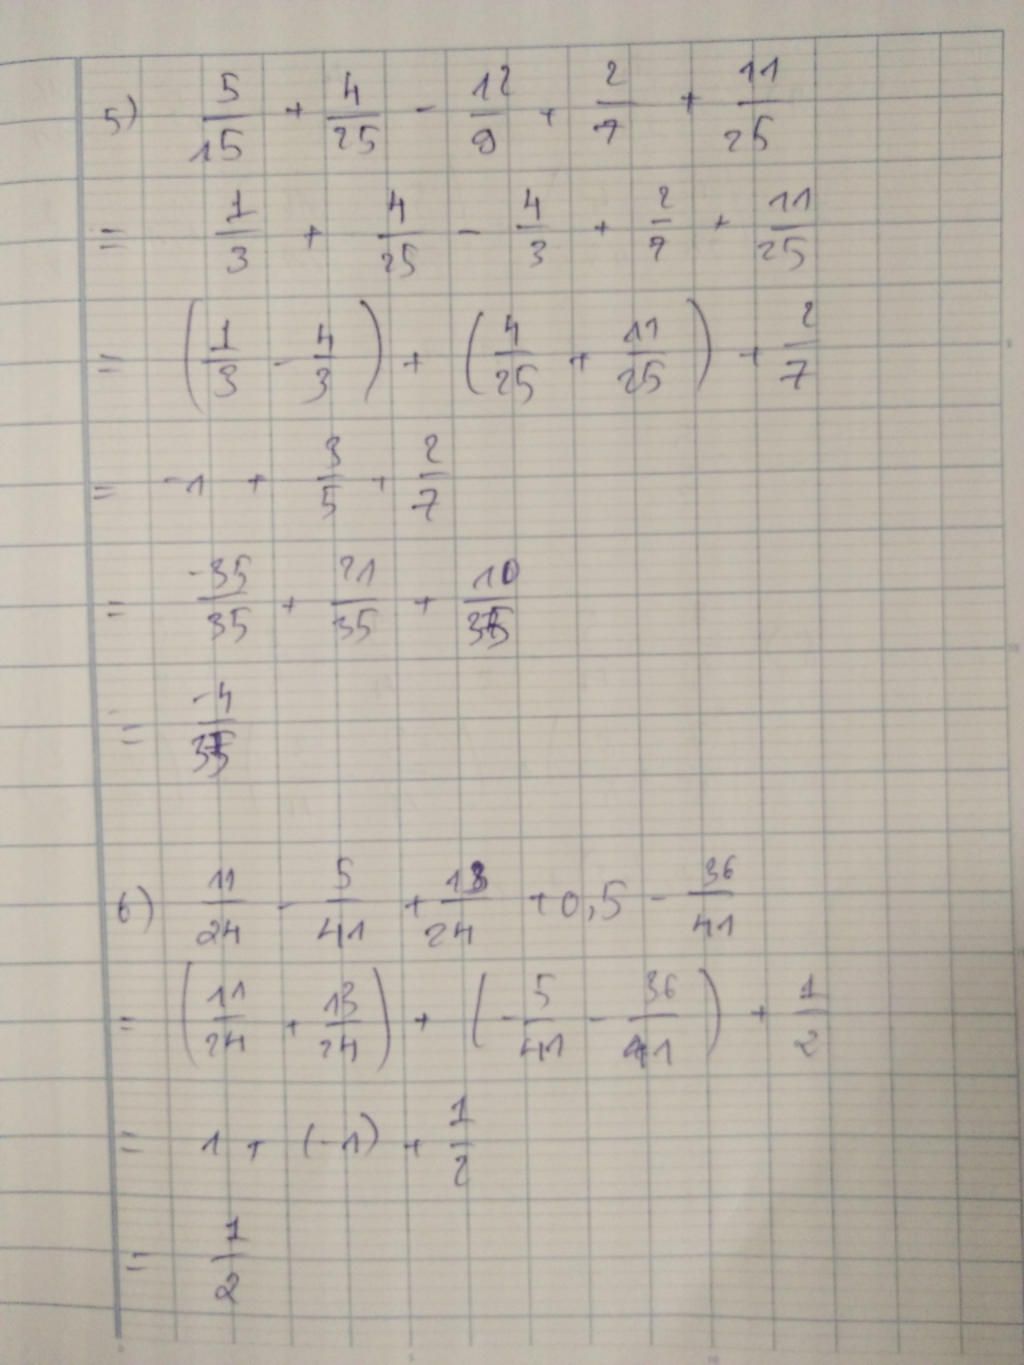 5) 5/15 + 4/25 - 12/9 + 2/7 + 11/25
= 1/3 + 4/25 - 4/3 + 2/7 + 11/25
= (1/3 - 4/3) + (4/25 + 11/25) + 2/7
= -1 + 3/5 + 2/7
= -35/35 + 21/35 + 10/35
= -4/35
6) 11/24 - 5/41 + 13/24 + 0,5 - 36/41
= (11/24 + 13/24) + (-5/41 - 36/41) + 1/2
= 1 + (-1) + 1/2
= 1/2